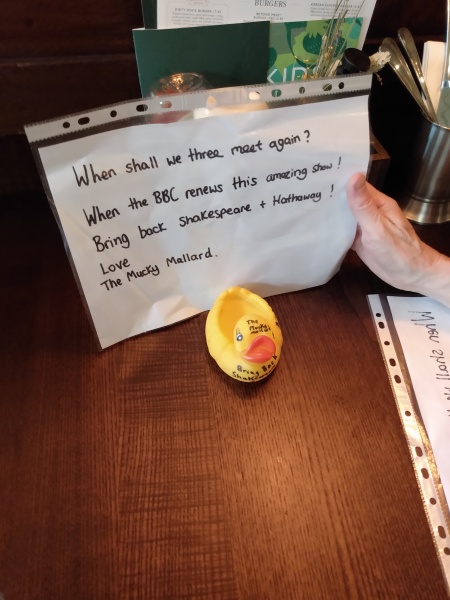 BURGERS
KIDS
When shall we three meet again?
When the BBC renews this amazing show!
Bring back Shakespeare + Hathaway!
Love
The Mucky Mallard.
The
Mucky
Mallard
Bring Back
When shall